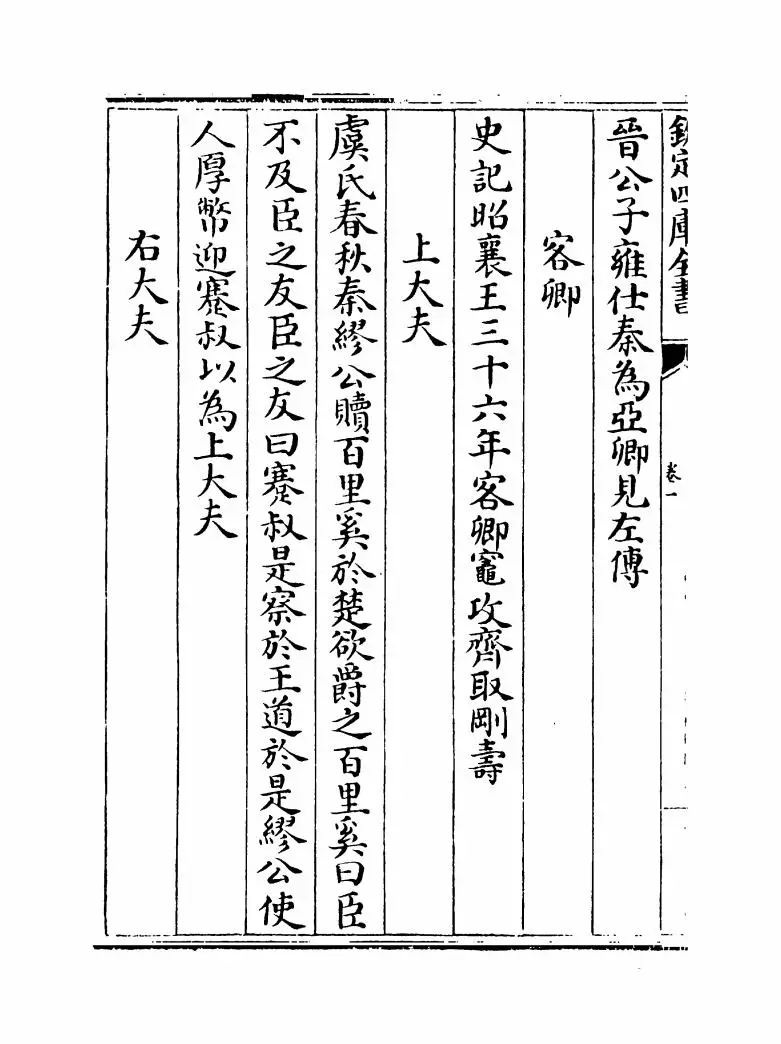 欽定四庫全書
卷一
晉公子雍仕秦為亞卿見左傳
客卿
史記昭襄王三十六年客卿竈攻齊取剛壽
上大夫
虞氏春秋秦繆公贖百里奚於楚欲爵之百里奚曰臣
不及臣之友臣之友曰蹇叔是察於王道於是繆公使
人厚幣迎蹇叔以為上大夫
右大夫